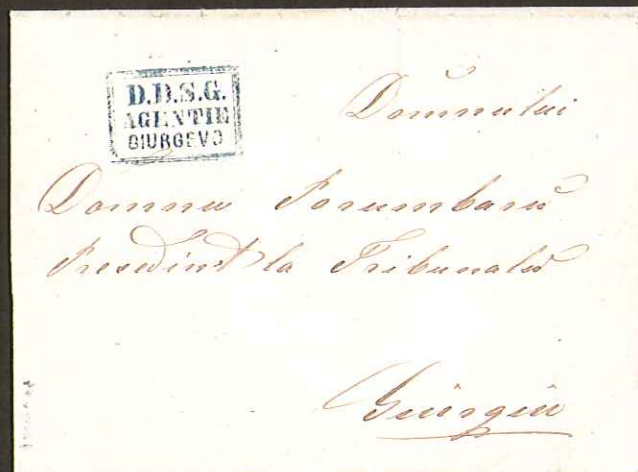 D.D.S.G.
AGENTIE
GIURGEVO
Domnului
Domnu Porumbaru
Presedint la Tribunalu
Giurgiu